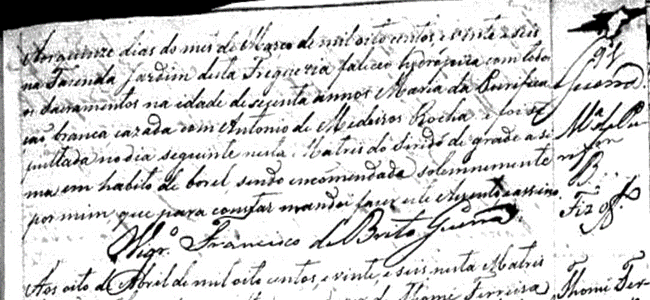 Aos quinze dias do mes de Março de mil oito centos e vinte e seis
na Fazenda Jardim desta Freguezia faleceo hydrópica com todos
os Sacramentos na idade de secenta annos Maria da Purifica
cão branca cazada com Antonio de Medeiros Rocha e foi se
pultada no dia seguinte nesta Matris do Siridó de grade a si
ma em habito de borel sendo encomendada solemnemente
por mim que para constar mandei fazer este Assento e assino
Vigr.º Francisco de Brito Guerra
Aos oito de Abril de mil oito centos, e vinte, e seis nesta Matris
Thome Ferreira
Guerra
M.ª da Pu
B.
Fiz off.
Thomé Fer-